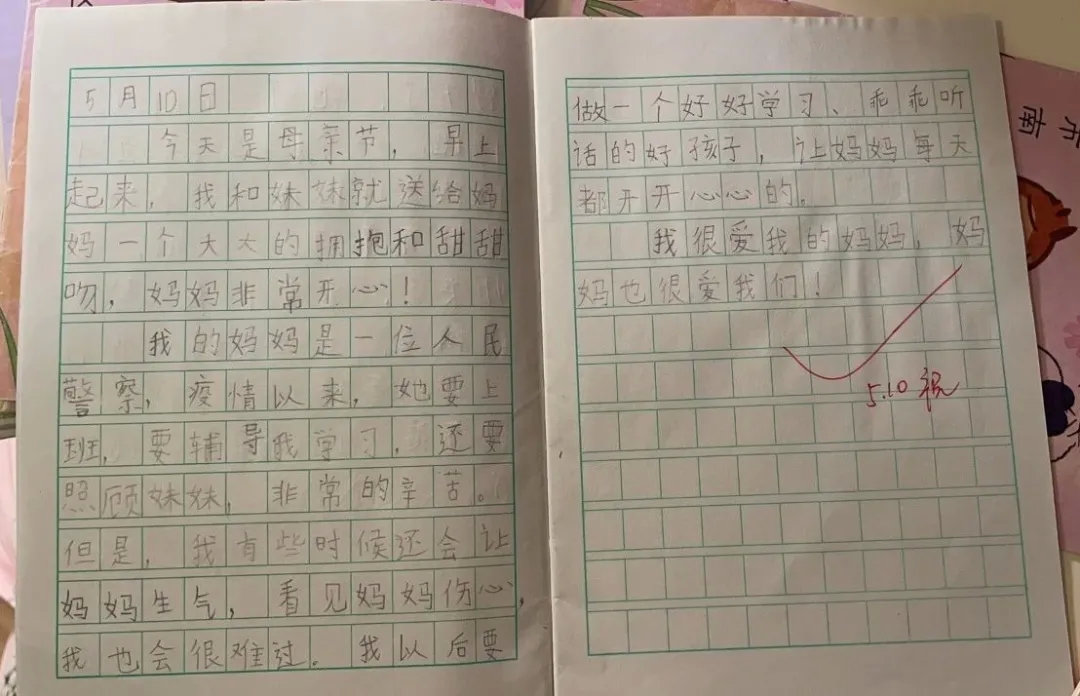 5月10日
今天是母亲节，早上
起来，我和妹妹就送给妈
妈一个大大的拥抱和甜甜
吻，妈妈非常开心！
我的妈妈是一位人民
警察，疫情以来，她要上
班，要辅导我学习，还要
照顾妹妹，非常的辛苦。
但是，我有些时候还会让
妈妈生气，看见妈妈伤心，
我也会很难过。我以后要
做一个好好学习、乖乖听
话的好孩子，让妈妈每天
都开开心心的。
我很爱我的妈妈，妈
妈也很爱我们！
5.10